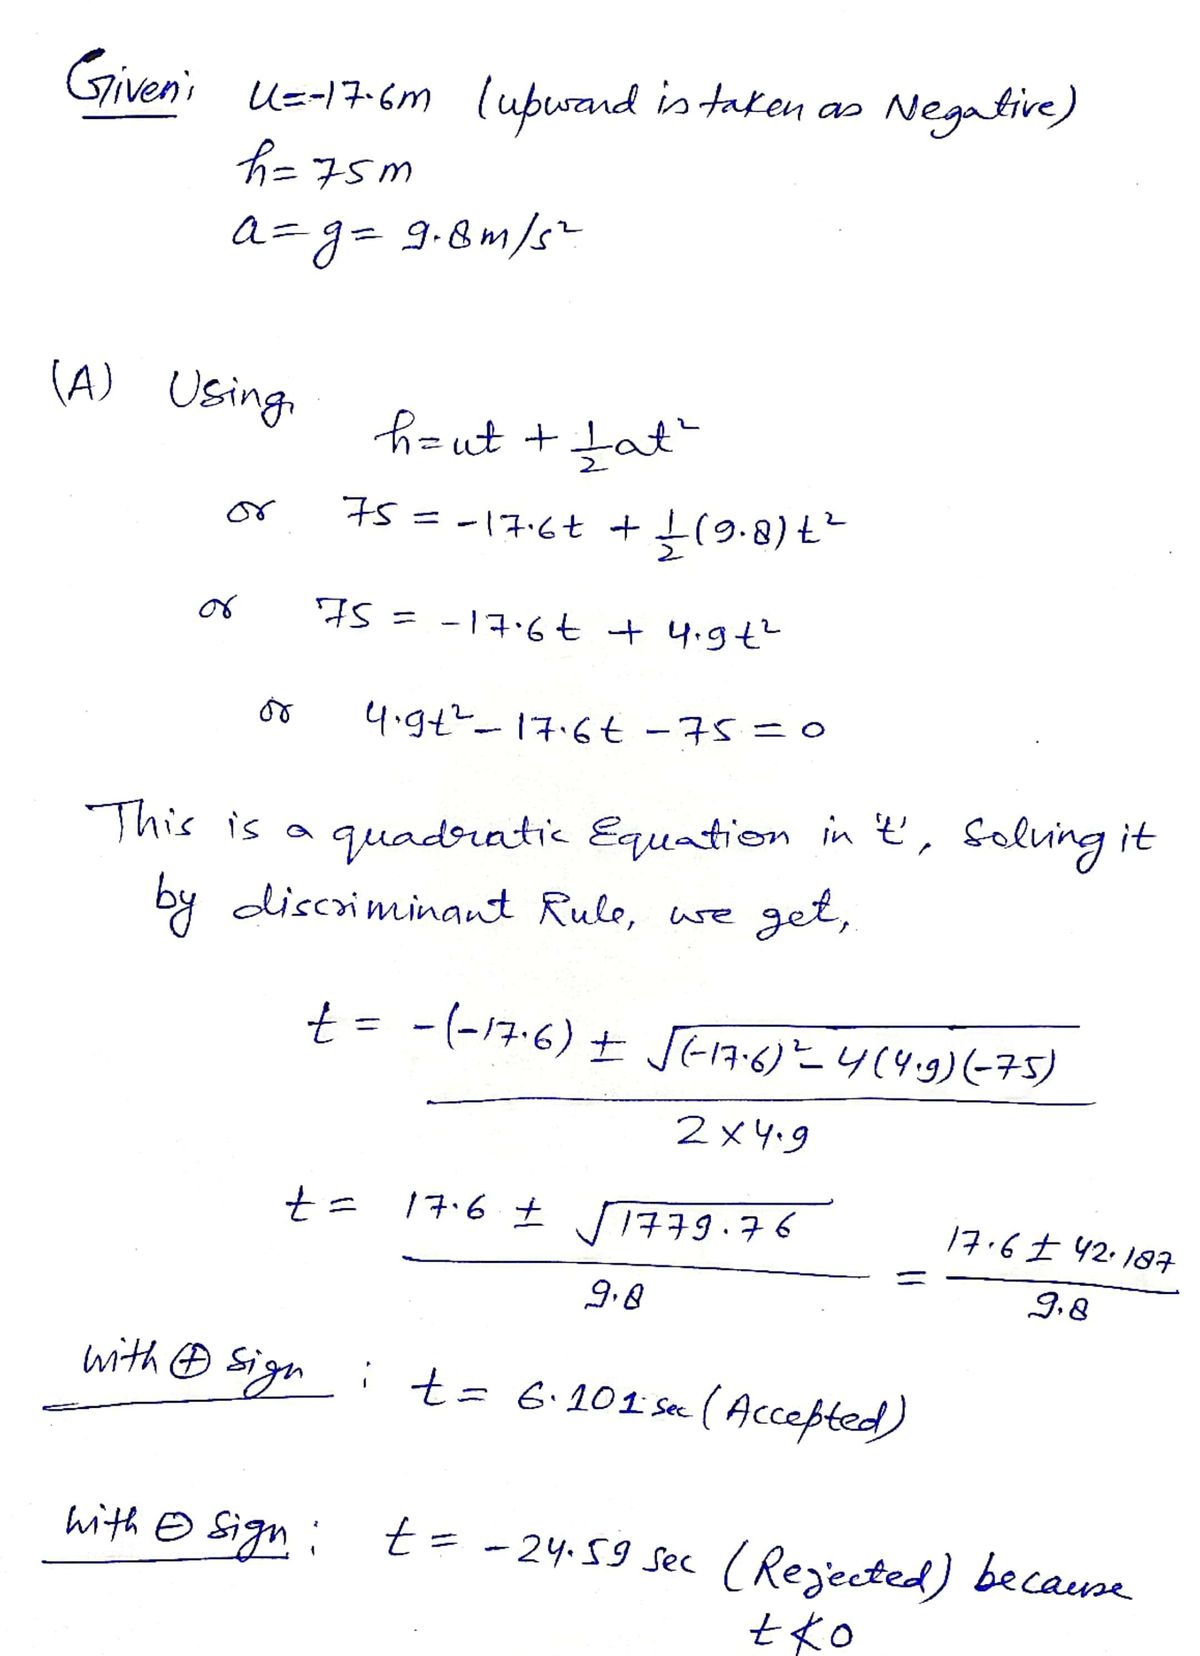 Given: u=-17.6m (upward is taken as Negative)
h=75m
a=g=9.8m/s²
(A) Using,
h=ut + 1/2 at²
or 75 = -17.6t + 1/2 (9.8)t²
or 75 = -17.6t + 4.9t²
or 4.9t² - 17.6t - 75 = 0
This is a quadratic Equation in 't', Solving it
by discriminant Rule, we get,
t = (-(-17.6) ± √((-17.6)² - 4(4.9)(-75))) / (2×4.9)
t = (17.6 ± √1779.76) / 9.8 = (17.6 ± 42.187) / 9.8
with ⊕ Sign : t = 6.101 sec (Accepted)
with ⊖ Sign : t = -24.59 sec (Rejected) because
t ≮ 0